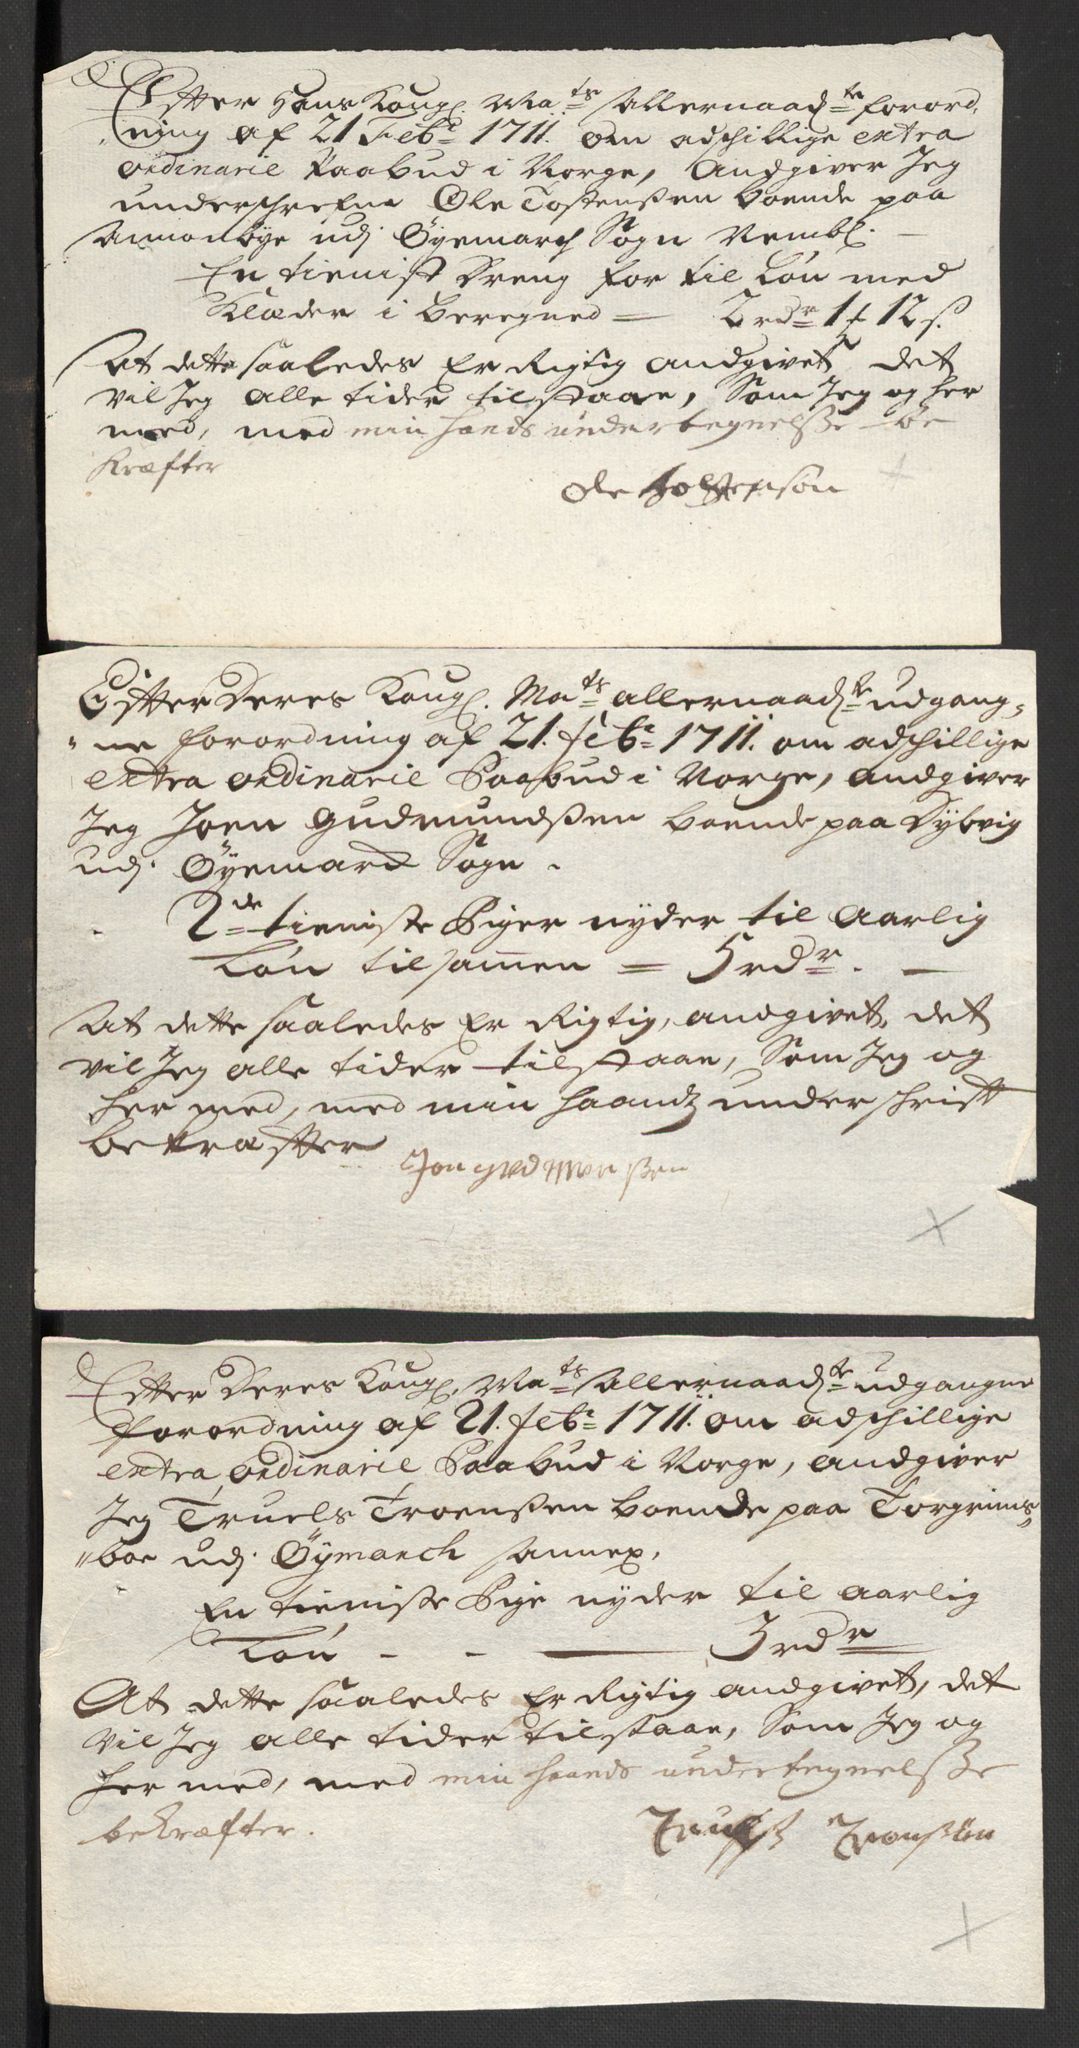 Efter Hans Kongl. Ma:ts Allernaad:te forord,
ning af 21 Feb: 1711. om adschillige extra
ordinarie Paabud i Norge, Andgiver Jeg
underschrefne Ole Tostenßen boende paa
udj Øyemarch Sogn Nembl.
En tieniste Dreng for til Løn med
Klæder i beregned — 2 rdr 1 ₰ 12 s.
At dette saaledes Er Rigtig andgivet det
vil Jeg alle tider tilstaae, Som Jeg og her
med, med min hands undertegnelsße be
kræfter
Ole Tostenson
Efter Deres Kongl. Ma:ts allernaad:te udgang,
ne forordning af 21. feb: 1711. om adschillige
extra ordinarie Paabud i Norge, andgiver
Jeg Joen Gudmundßen boende paa Dybvig
udj. Øyemark Sogn.
2:de tieniste Piger nyder til Aarlig
Løn tilsammen = 5 rdr. —
At dette saaledes Er Rigtig, andgivet, det
vil Jeg alle tider tilstaae, Som Jeg og
her med, med min haandz underschrift
bekræfter
Jon gudmunßen
Efter Deres Kongl. Ma:ts Allernaad:te udgangne
forordning af 21. feb: 1711. om adschillige
extra ordinarie Paabud i Norge, andgiver
Jeg Truels Troenßen boende paa Torgrims,
boe udj. Øymarch annex.
En tieniste Pige nyder til aarlig
Løn - - — 3 rdr
At dette saaledes Er Rigtig andgivet, det
vil Jeg alle tider tilstaae, Som Jeg og
her med, med min haands undertegnelsße
bekræfter.
Truelß Tronßøn